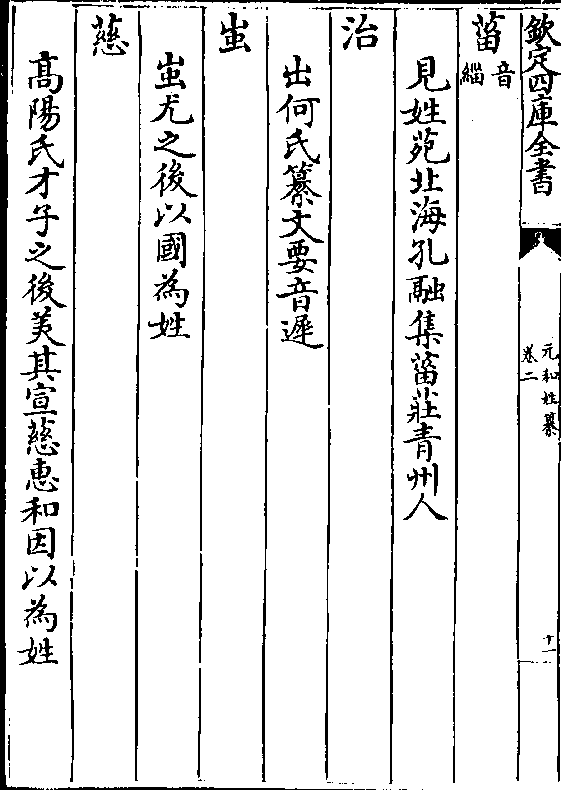 欽定四庫全書
元和姓纂
卷二
十一
菑音緇
見姓苑北海孔融集菑莊青州人
治
出何氏纂文要音遲
蚩
蚩尤之後以國為姓
慈
高陽氏才子之後美其宣慈惠和因以為姓